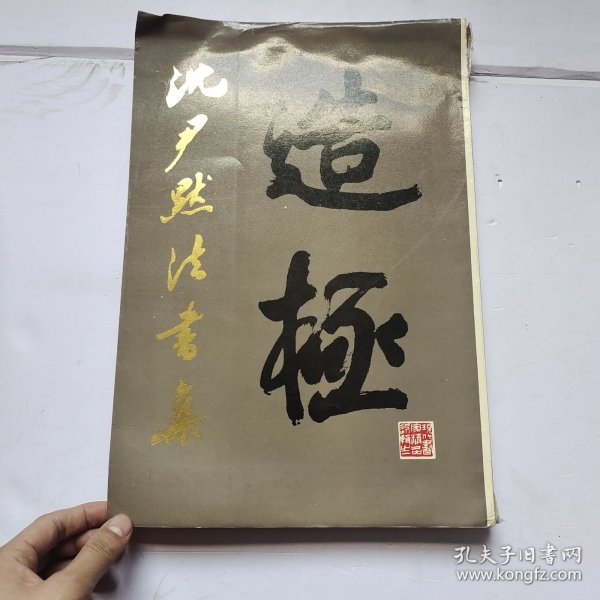 沈尹默法書集
造極
孔夫子旧書网
www.kongfz.com